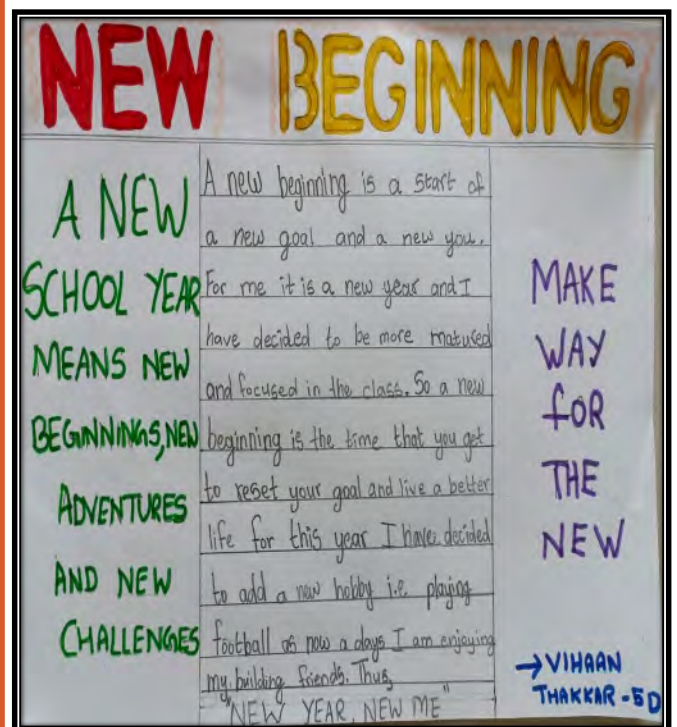 NEW BEGINNING
A NEW
SCHOOL YEAR
MEANS NEW
BEGINNINGS, NEW
ADVENTURES
AND NEW
CHALLENGES
A new beginning is a start of
a new goal and a new you.
For me it is a new year and I
have decided to be more matured
and focused in the class. So a new
beginning is the time that you get
to reset your goal and live a better
life for this year I have decided
to add a new hobby i.e playing
football as now a days I am enjoying
my building friends. Thus,
"NEW YEAR, NEW ME"
MAKE
WAY
FOR
THE
NEW
→ VIHAAN
THAKKAR - 5D